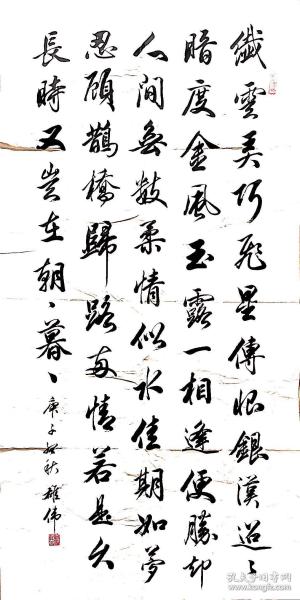 纖雲弄巧飛星傳恨銀漢迢々
暗度金風玉露一相逢便勝却
人間無数柔情似水佳期如夢
忍顾鵲橋歸路两情若是久
長時又豈在朝、暮、
庚子初秋 雄伟
孔夫子旧书网